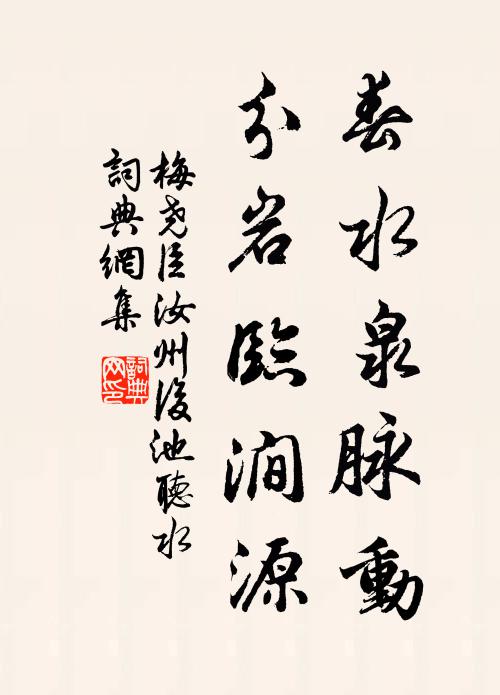 春水泉脉動
分岩臨澗源
梅尧臣汝州後池聽水
詞典網集
詞典
网印